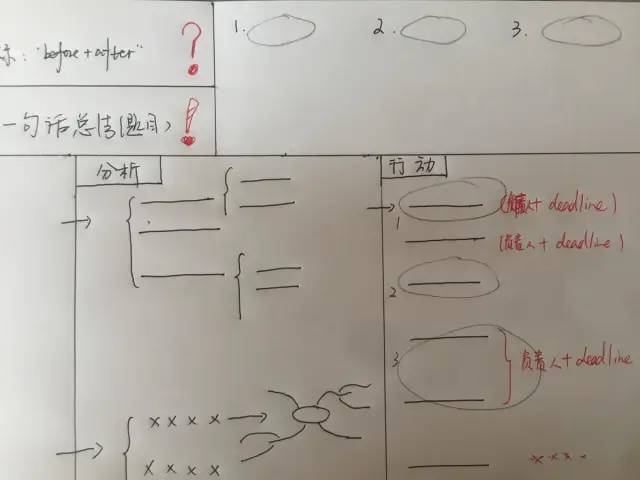 示: "before + after" ?
1. 2. 3.
一句话总结(题目) !
分析
行动
1 (负责人+ deadline)
(负责人+ deadline)
2
3 负责人+ deadline
x x x x
x x x x
x x x .